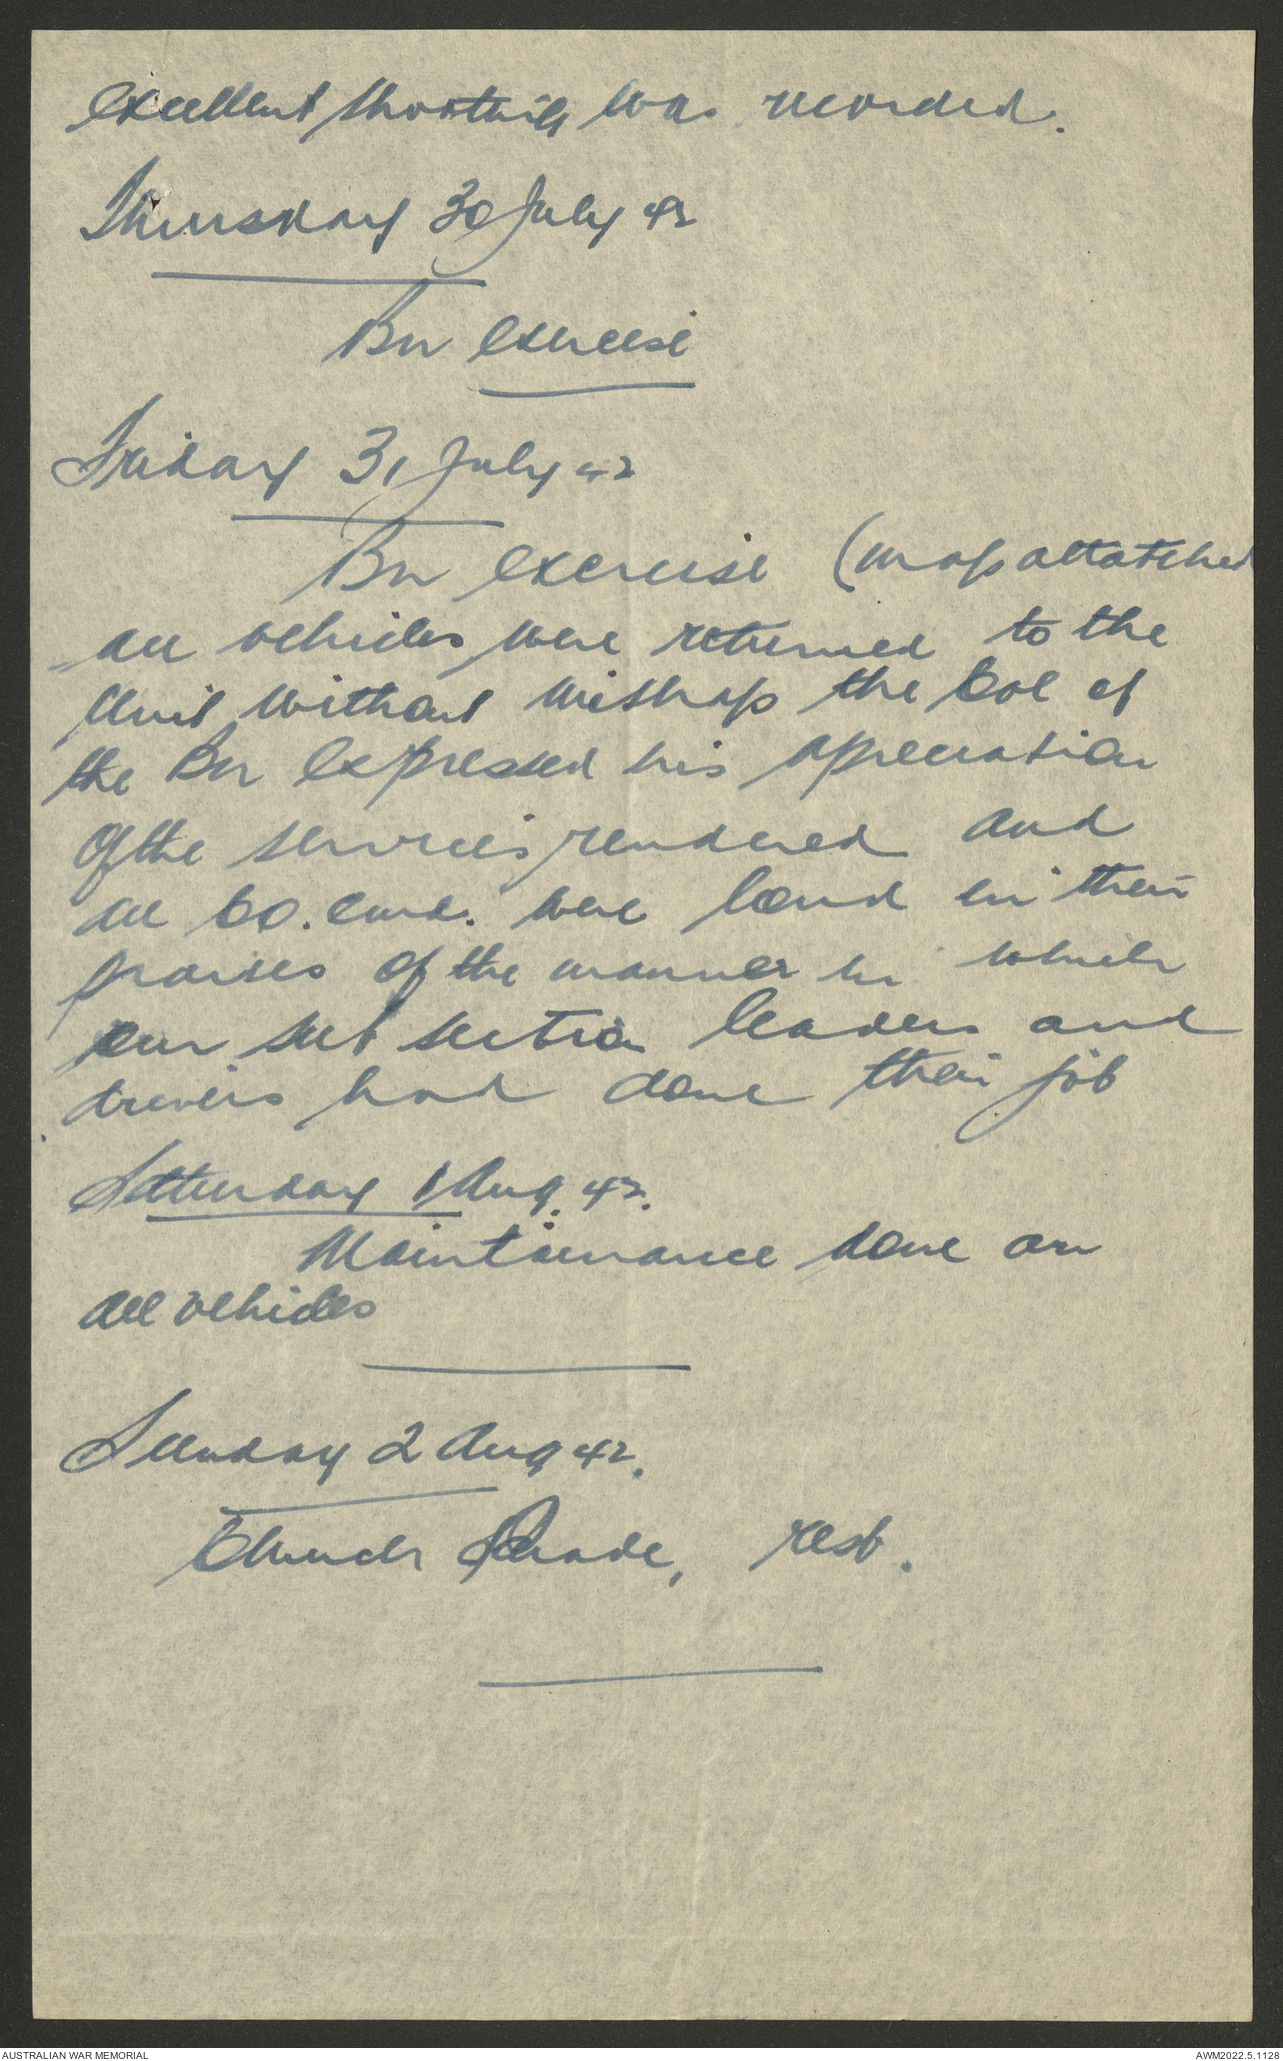 excellent shooting was recorded.
Thursday 30 July 42
Bn exercise
Friday 31 July 42
Bn exercise (map attatched
all vehicles were returned to the
Unit without mishap the Col of
the Bn expressed his appreciation
Of the services rendered and
all Co. Cmd. were loud in their
praises of the manner in which
our sub section leaders and
drivers had done their job
Satturday 1 Aug. 42.
Maintainance done on
all vehicles
Sunday 2 Aug 42.
Church Parade, rest.
AUSTRALIAN WAR MEMORIAL
AWM2022.5.1128